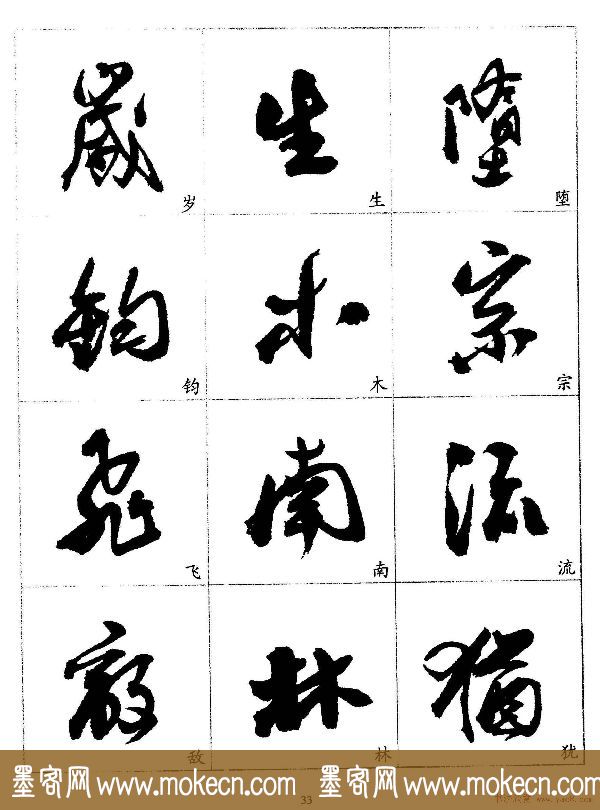 歲 生 墮
岁 生 堕
鈞 木 宗
钧 木 宗
飛 南 流
飞 南 流
敵 林 猶
敌 林 犹
墨客网 www.mokecn.com 墨客网 www.mokecn.com
33